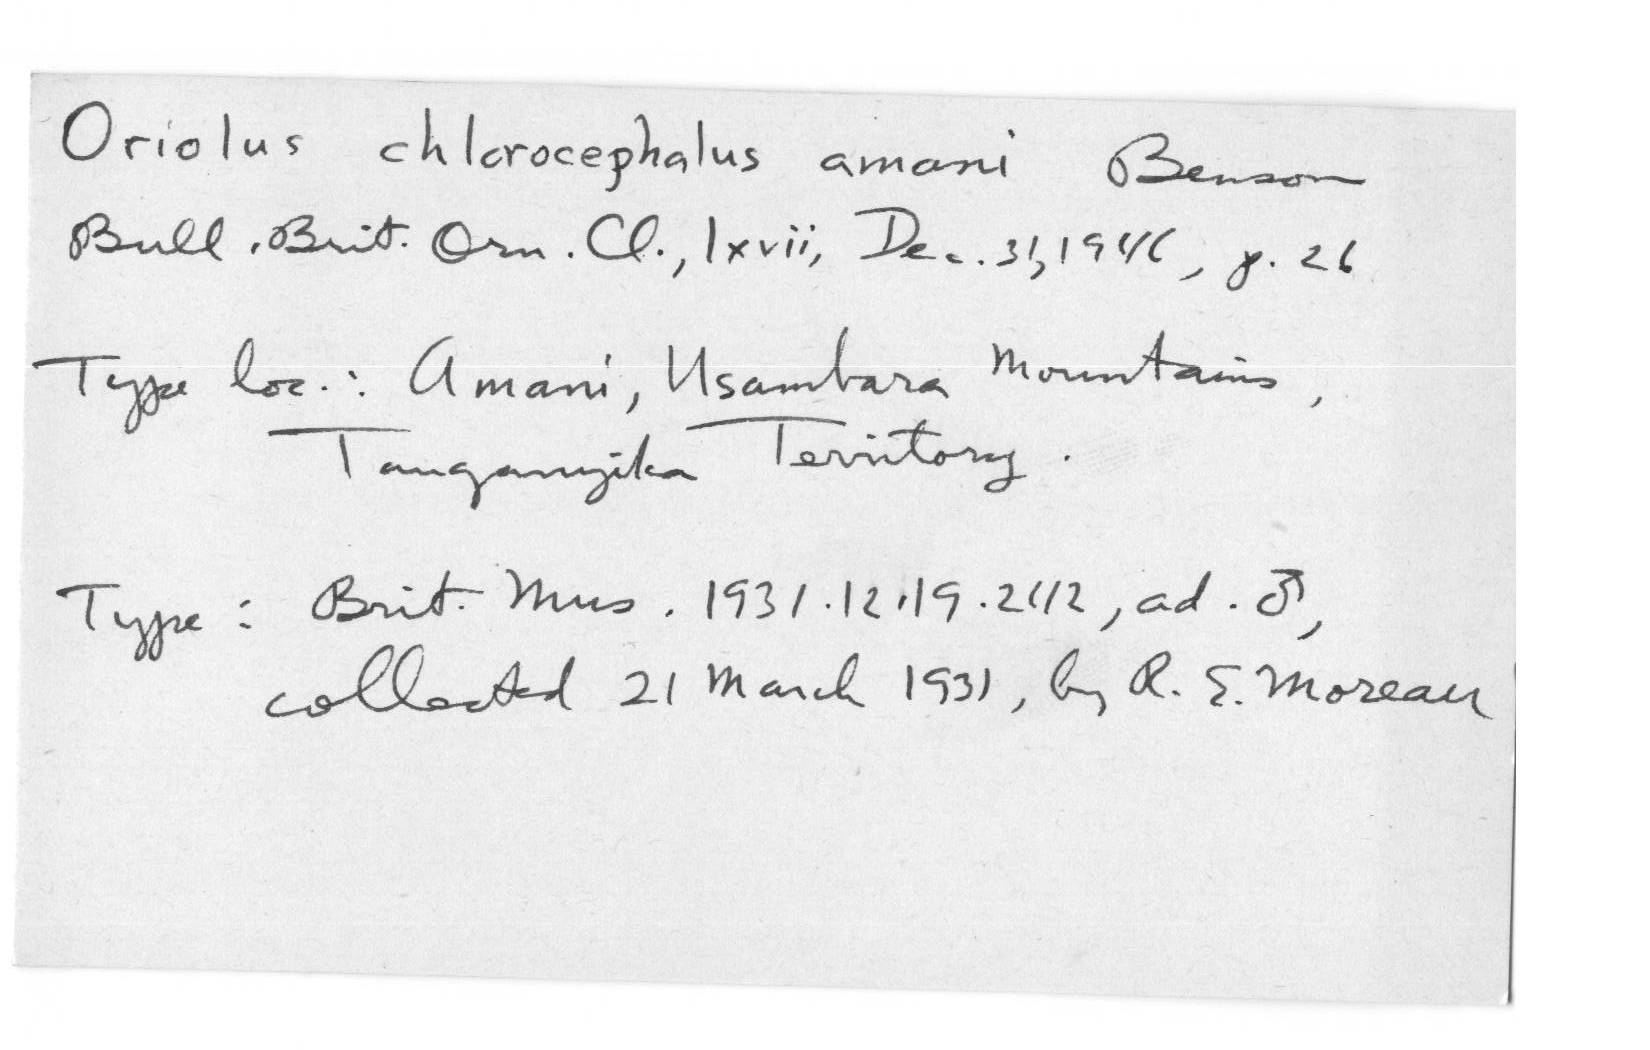 Oriolus chlorocephalus amani Benson
Bull. Brit. Orn. Cl., lxvii, Dec. 31, 1946, p. 26
Type loc.: Amani, Usambara Mountains,
Tanganyika Territory.
Type: Brit. Mus. 1931.12.19.242, ad. ♂,
collected 21 March 1931, by R. E. Moreau